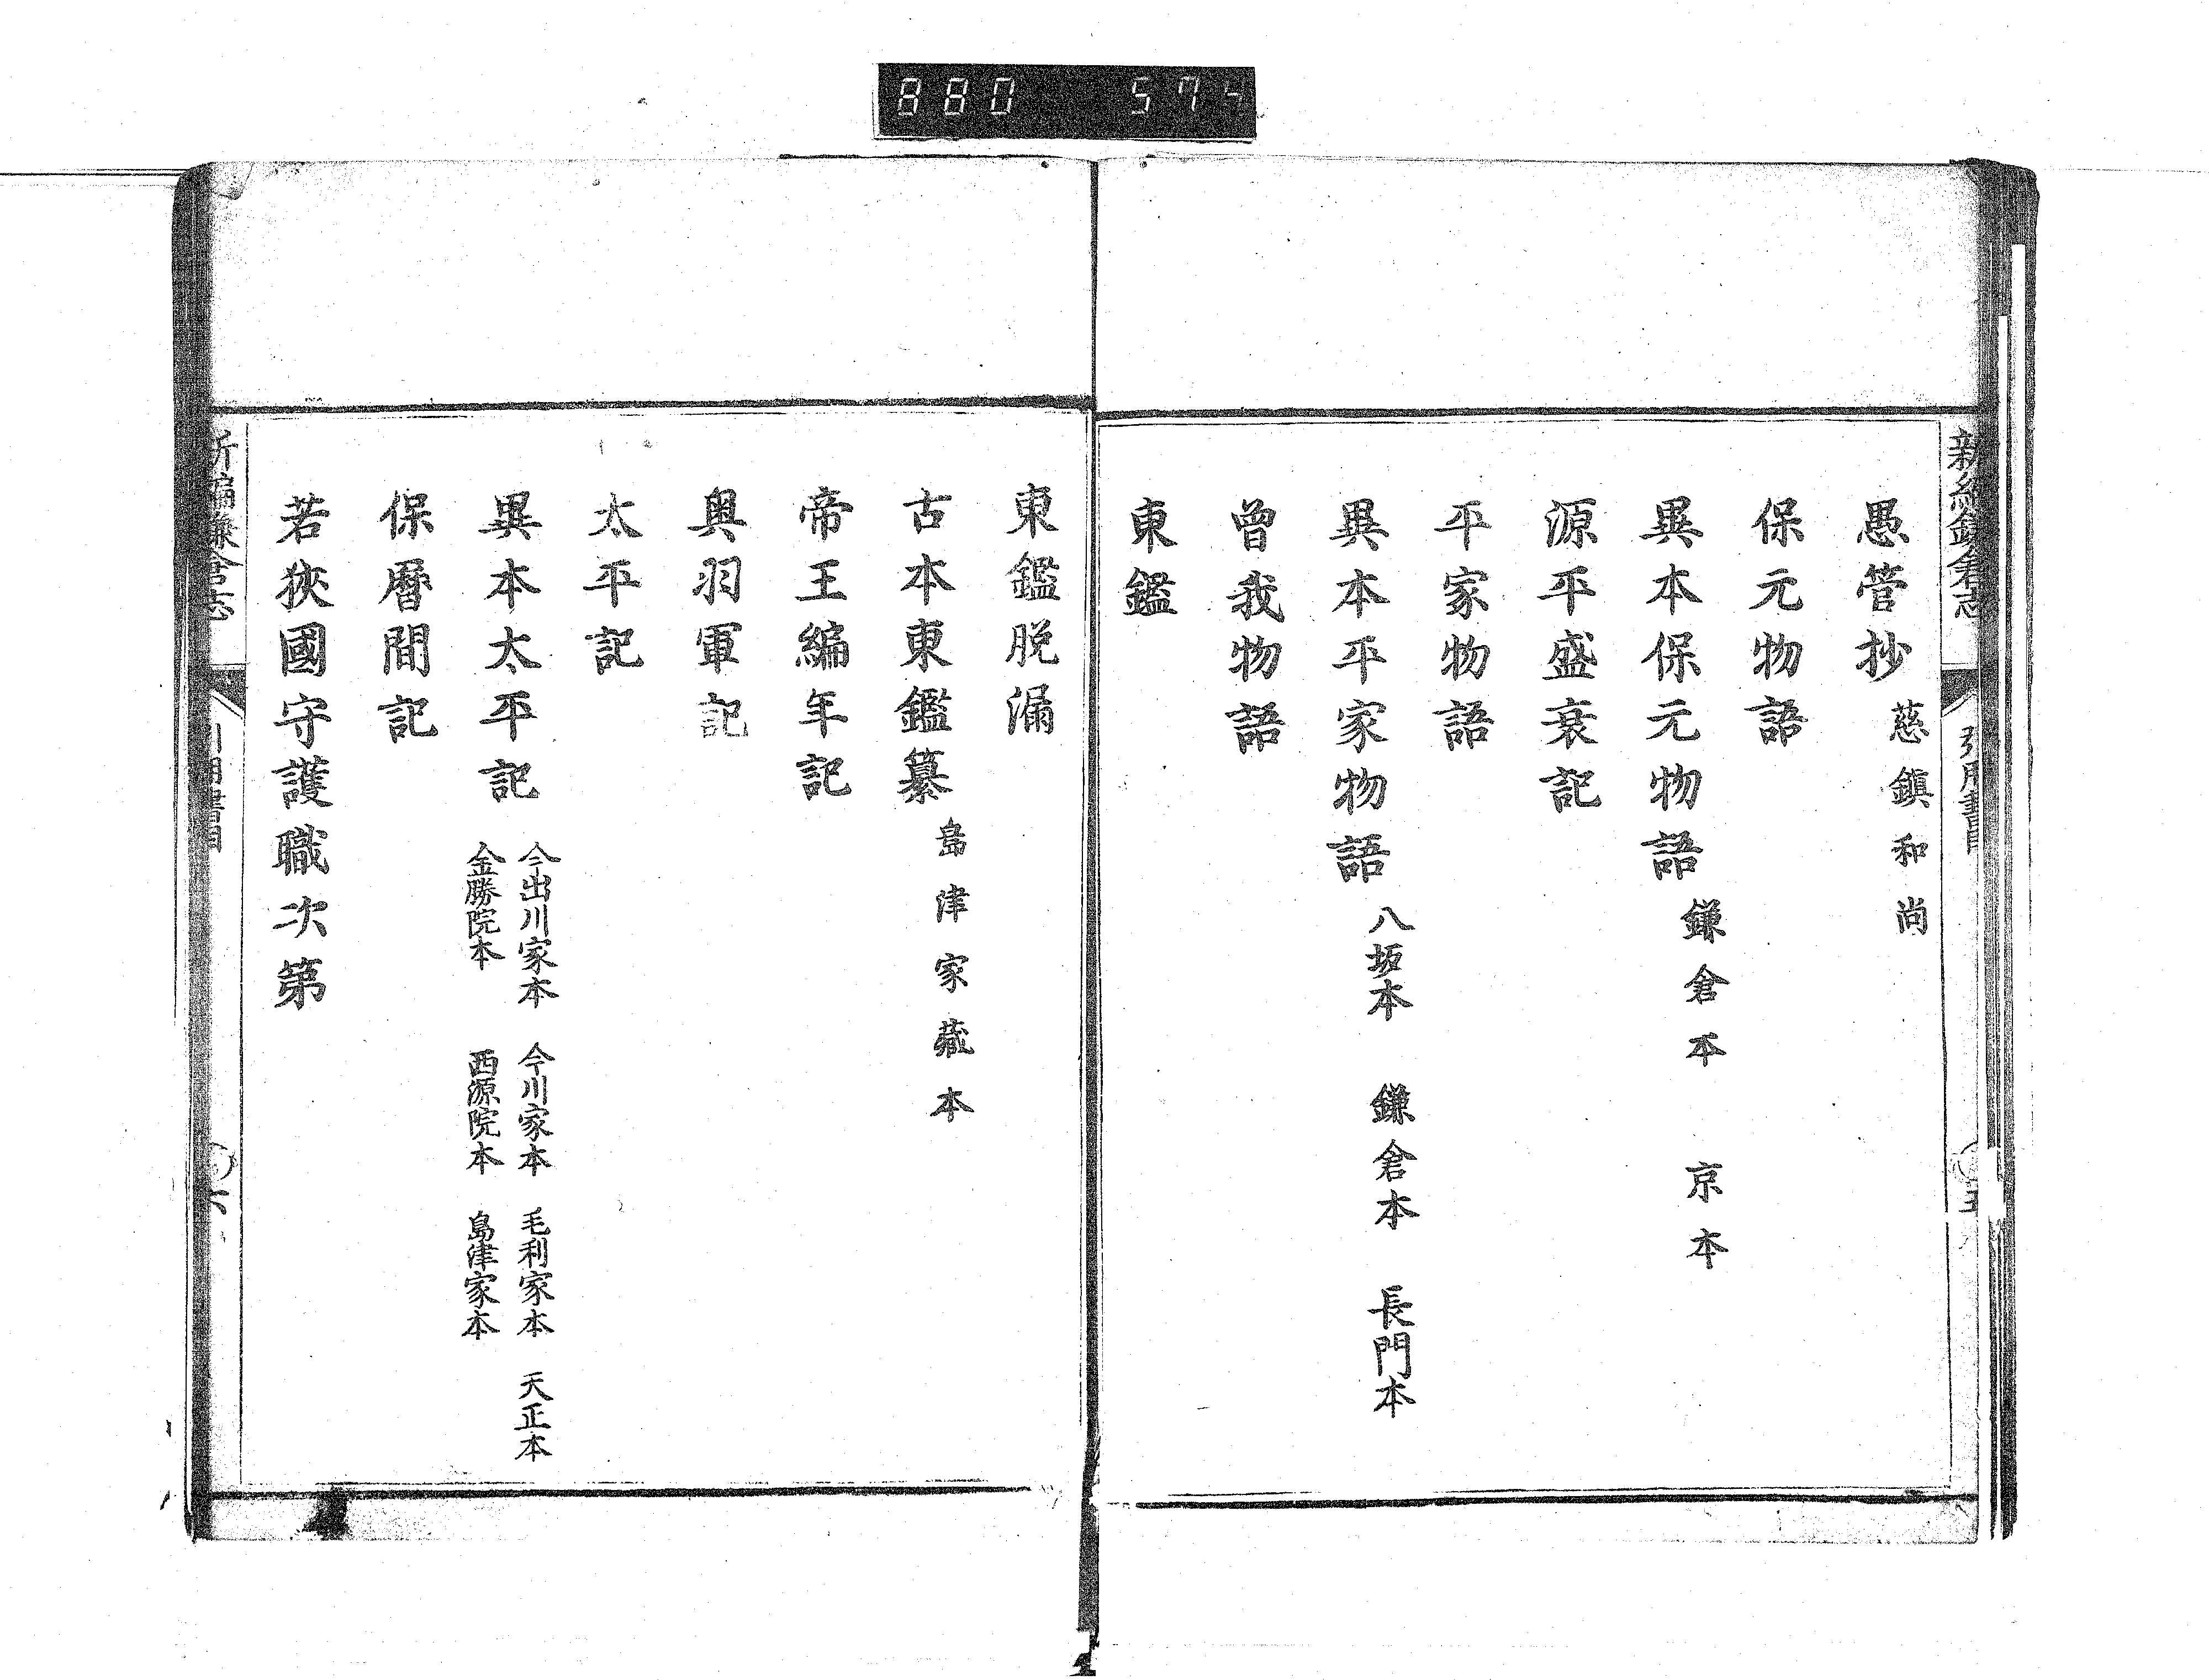 880 574
新編鎌倉志 引用書目 五
愚管抄 慈鎭和尚
保元物語
異本保元物語 鎌倉本 京本
源平盛衰記
平家物語
異本平家物語 八坂本 鎌倉本 長門本
曽我物語
東鑑
東鑑脱漏
古本東鑑纂 島津家藏本
帝王編年記
奥羽軍記
太平記
異本太平記 今出川家本 今川家本 毛利家本 天正本
金勝院本 西源院本 島津家本
保暦間記
若狹國守護職次第
新編鎌倉志 引用書目 六